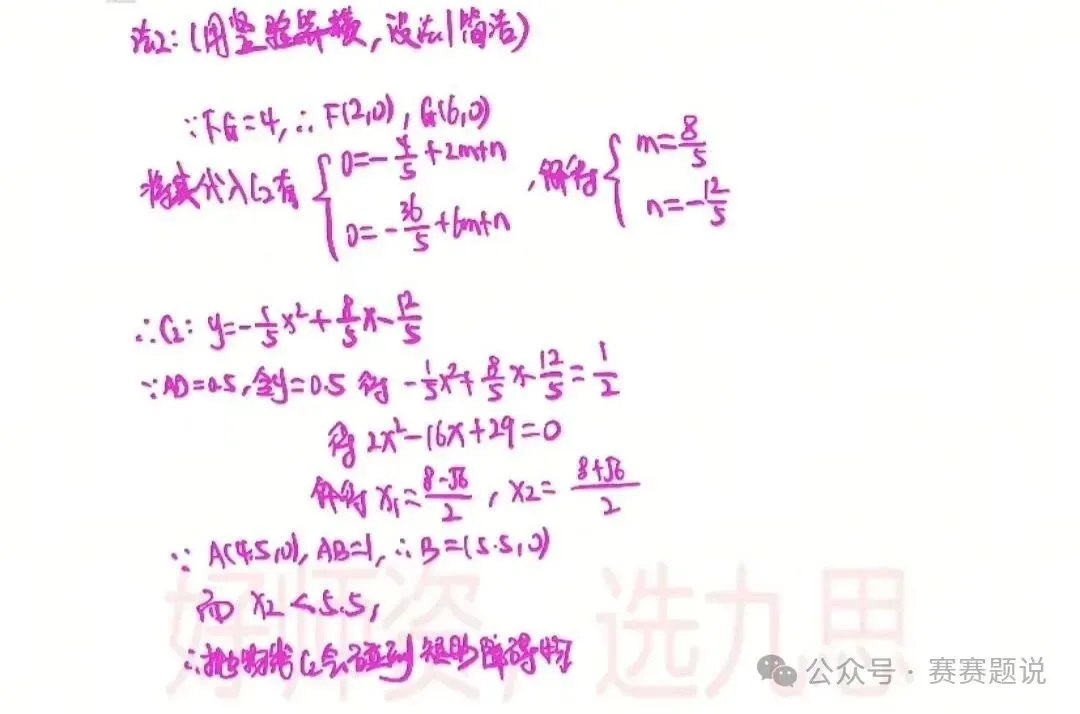 法2:(用竖验算横,设法1简洁)
∵FG=4,∴F(2,0),G(6,0)
将其代入C₂有 { 0=-4/5+2m+n , 0=-36/5+6m+n ,解得 { m=8/5 , n=-12/5
∴C₂: y=-1/5x²+8/5x-12/5
∵AD=0.5,令y=0.5 得 -1/5x²+8/5x-12/5=1/2
得 2x²-16x+29=0
解得 x₁=(8-√6)/2 , x₂=(8+√6)/2
∵ A(4.5,0), AB=1,∴B=(5.5,0)
而 x₂<5.5,
∴抛物线C₂会碰到矩形障碍物
好师资,选九思
公众号·赛赛题说